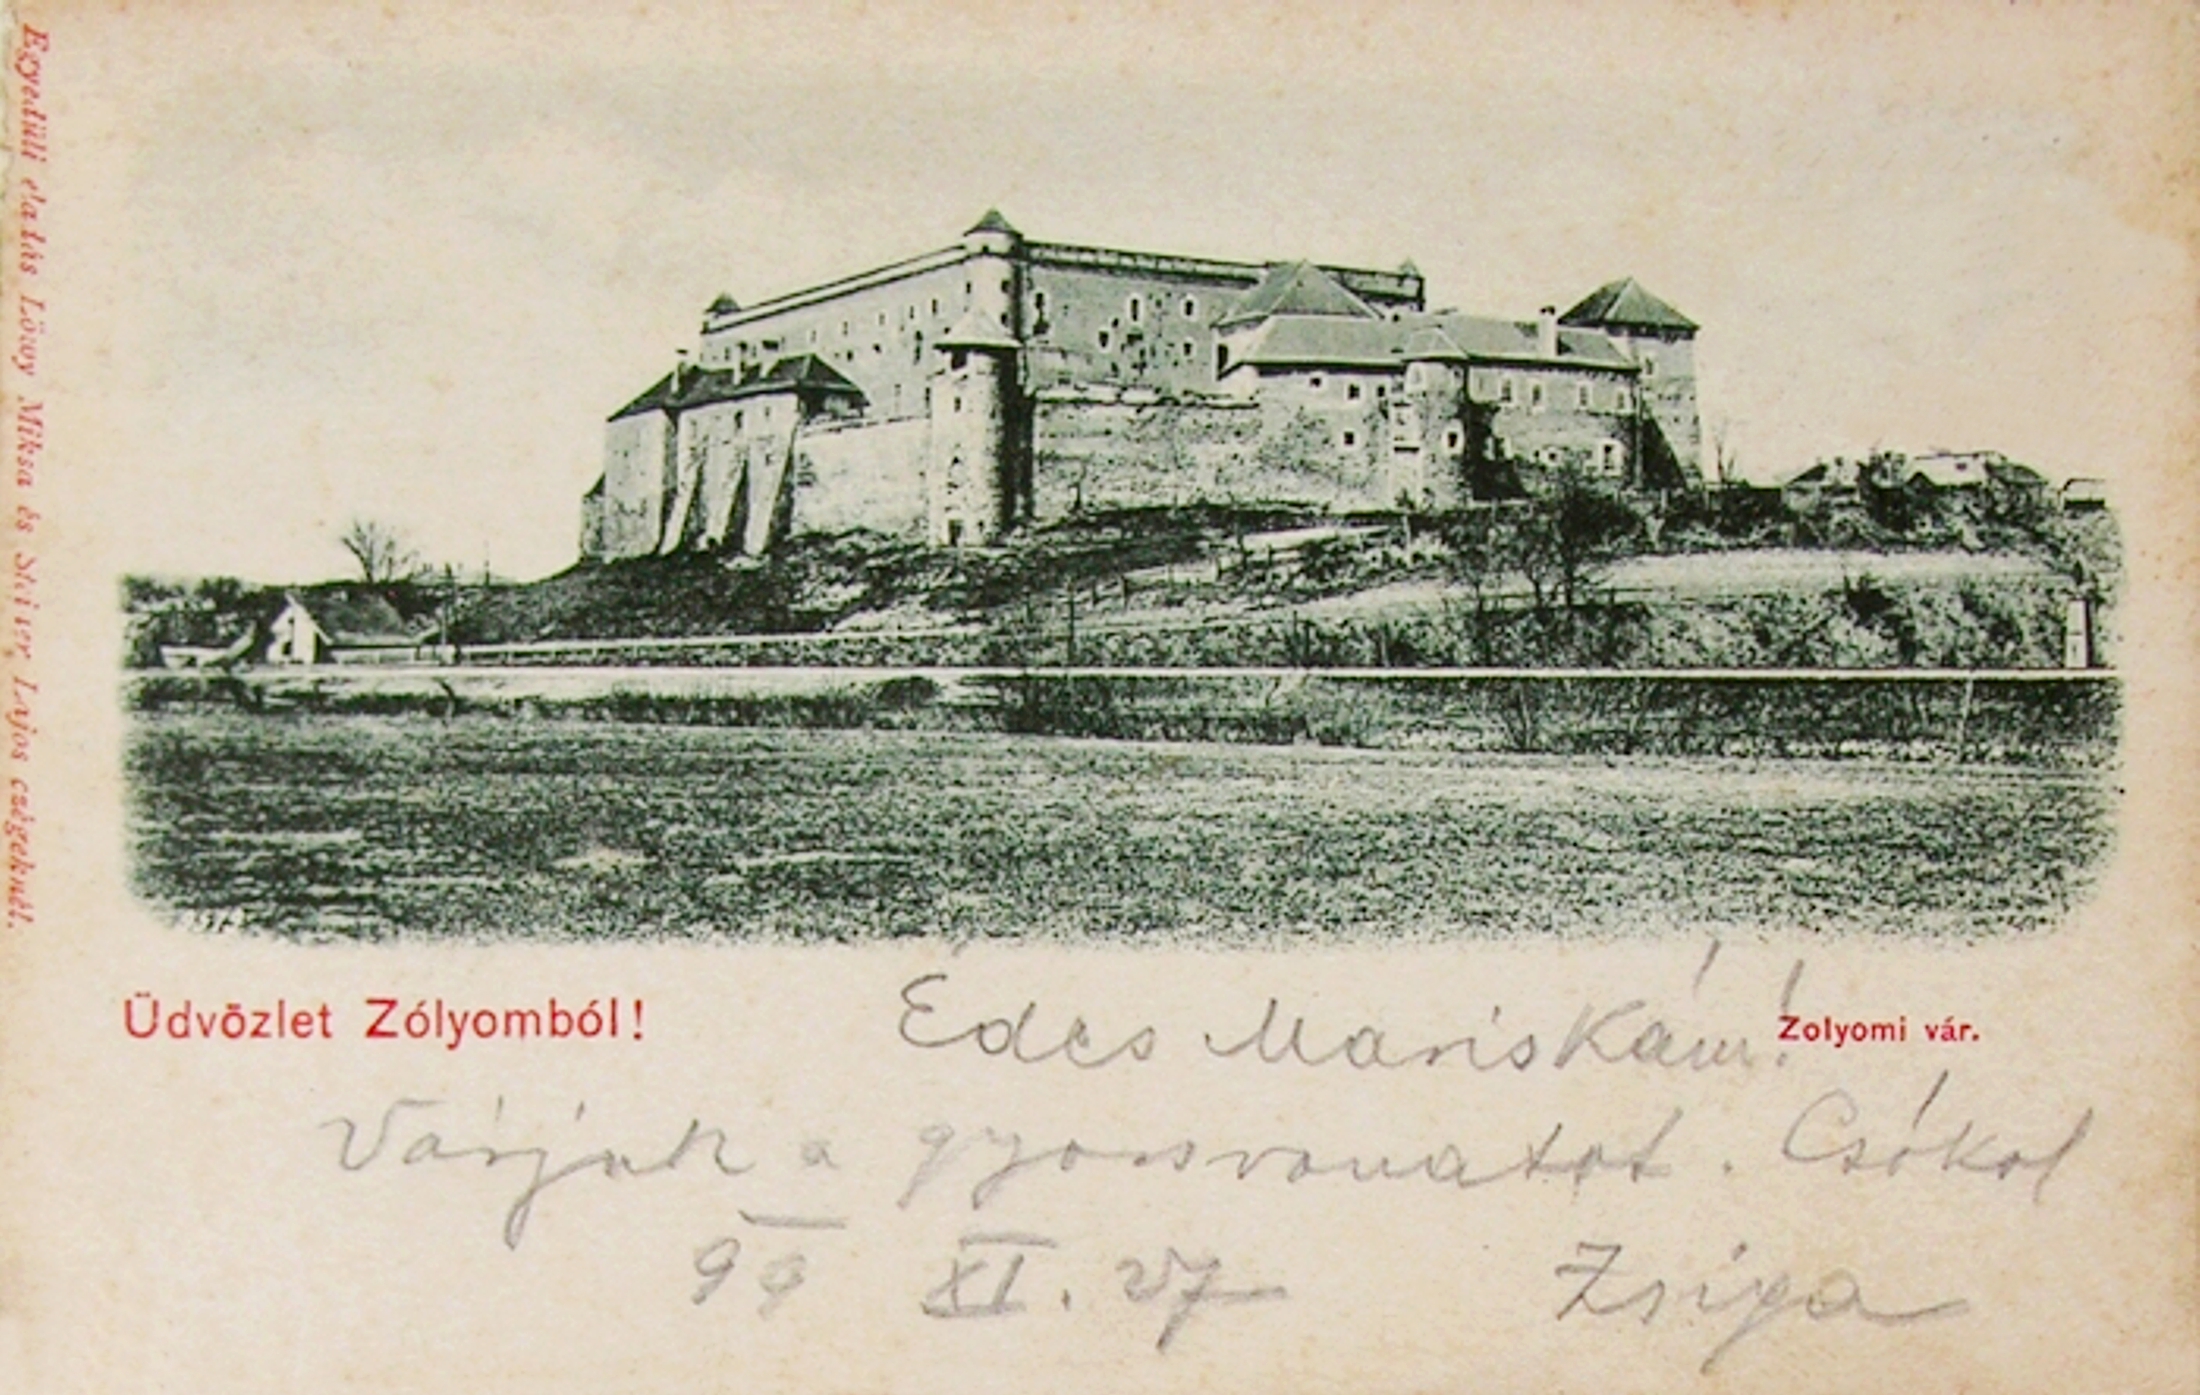 Egyedüli eladás Löwy Miksa és Steiner Lajos czégeknél.
Üdvözlet Zólyomból!
Zolyomi vár.
Édes Mariskám!
Várjuk a gyorsvonatot. Csókol
99 XI. 27 Zsiga